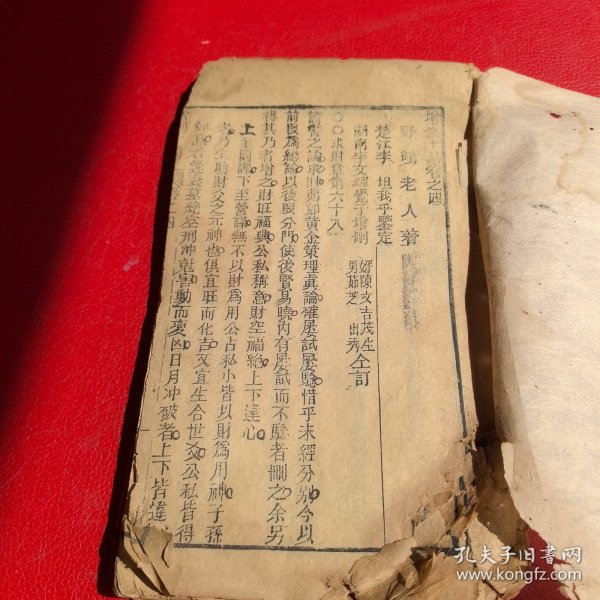 增刪卜易卷之四
野鶴老人著
楚江李 坦我乎鑒定
湖南李文輝覺子增刪
婿陳文吉茂生
男茹芝 山秀
仝訂
○○求財章第六十八
諸書之論求財莫如黃金策理眞論確屢試屢驗惜乎未經分別今以
前段爲總論以後厦分門使後賢易曉內有屡試而不驗者刪之余另
得其乃者增之財旺福興公私稱意財空福絶上下違心
上至國課下至營謀無不以財爲用公占私小皆以財爲用神子孫
者乃生財之元神也俱宜旺而化吉又宜生合世爻公私皆得
空刑冲剋官動而変凶日月冲破者上下皆違
孔夫子旧書网
www.kongfz.com